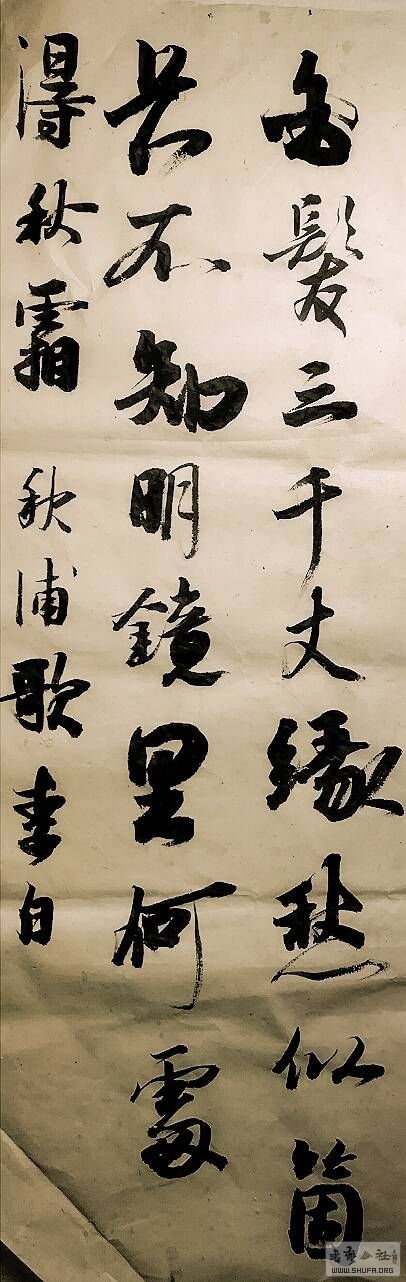 白髮三千丈緣愁似箇
長不知明鏡里何處
得秋霜 秋浦歌李白
書藝公社
WWW.SHUFA.ORG